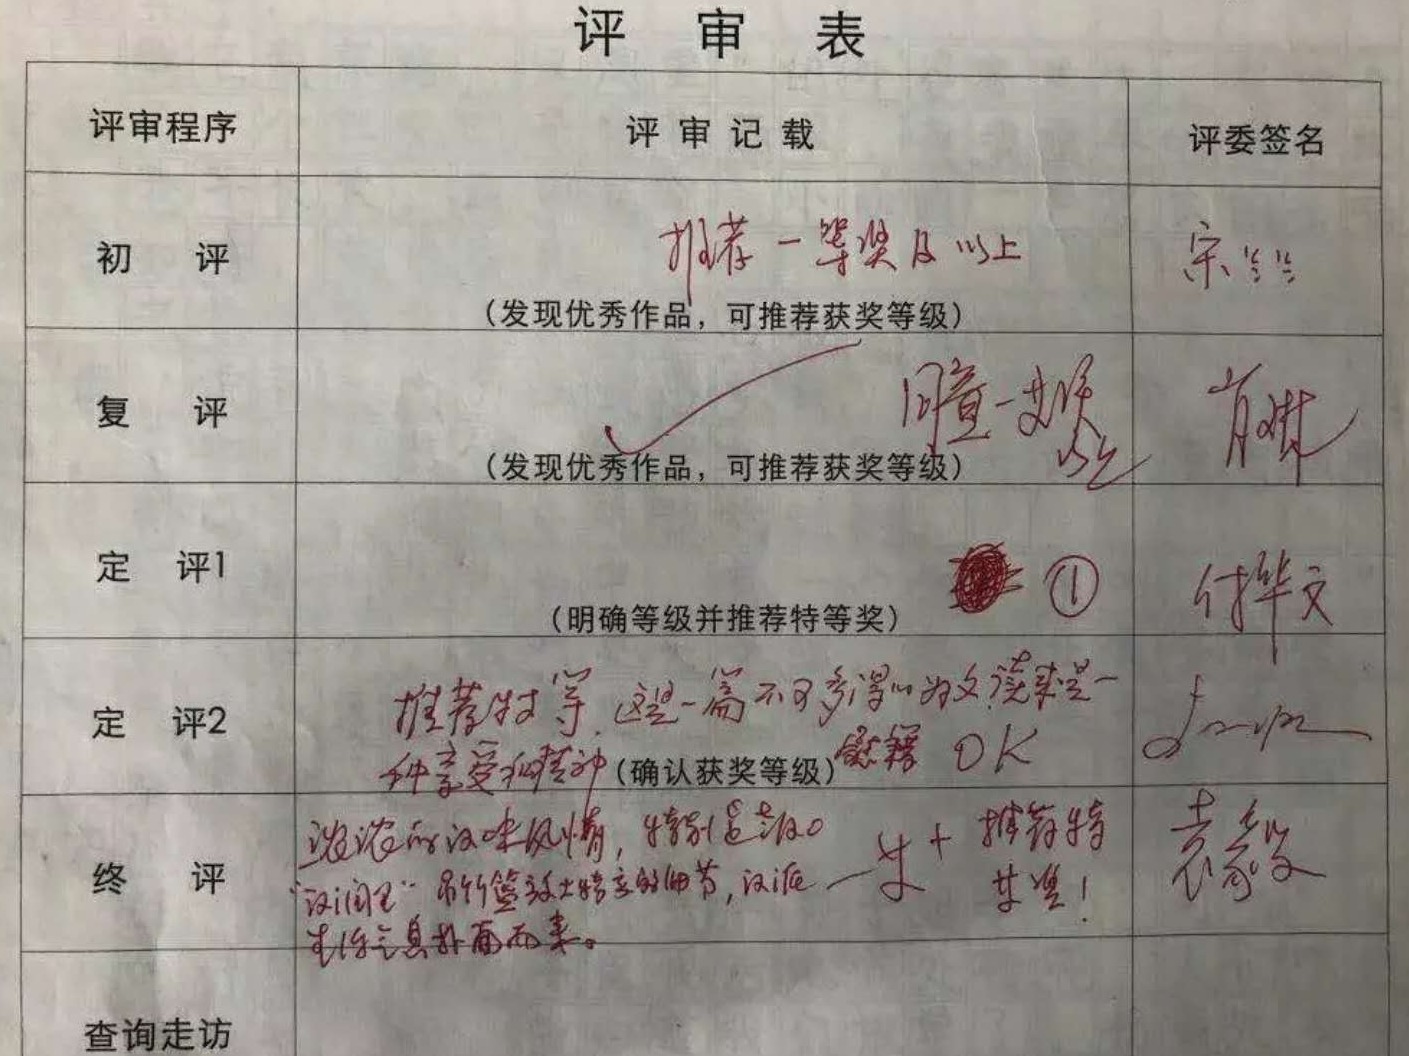 评 审 表
评审程序
评 审 记 载
评委签名
初 评
推荐一等奖及以上
(发现优秀作品，可推荐获奖等级)
复 评
同意一等奖
以上
(发现优秀作品，可推荐获奖等级)
定 评1
①
(明确等级并推荐特等奖)
付华文
定 评2
推荐特等。这是一篇不可多得的为文，读来是一
种享受和精神
(确认获奖等级)
慰藉 OK
终 评
浓浓的汉味风情，特别是
吊竹篮 的细节，汉派
生活气息扑面而来。
一等+
推荐特
等奖！
查询走访